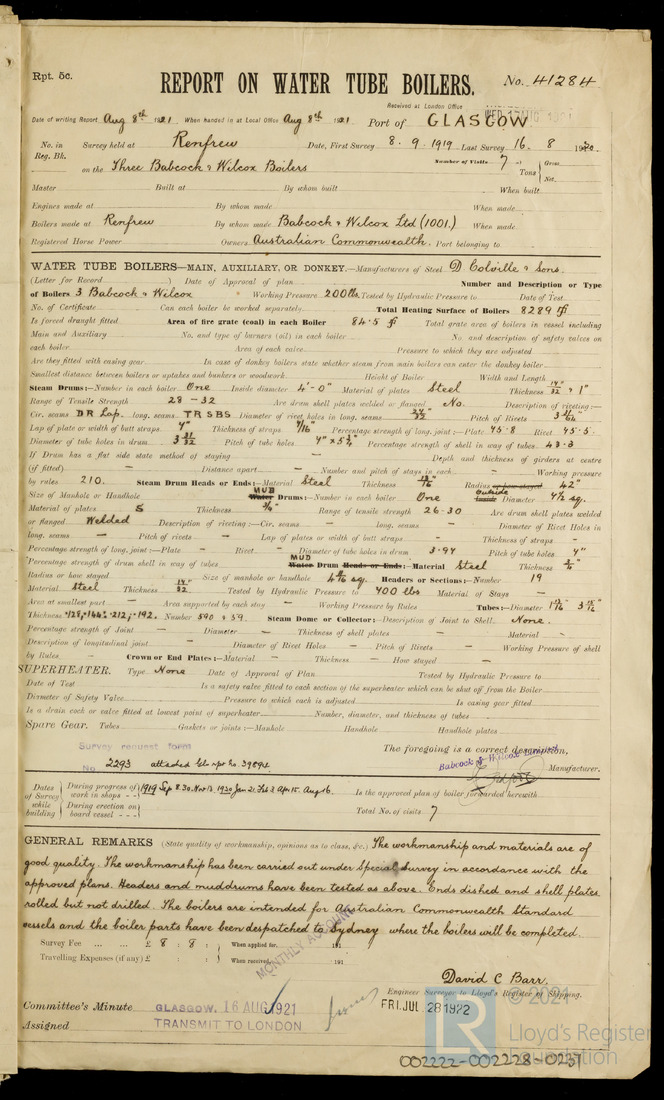 Rpt. 5c.
REPORT ON WATER TUBE BOILERS. No. 41284
Received at London Office WED. 17 AUG. 1921
Date of writing Report Aug 8th 1921 When handed in at Local Office Aug 8th 1921 Port of GLASGOW
No. in Reg. Bk. Survey held at Renfrew Date, First Survey 8.9.1919 Last Survey 16-8 1920
Number of Visits 7
on the Three Babcock & Wilcox Boilers Tons Gross Net
Master Built at By whom built When built
Engines made at By whom made When made
Boilers made at Renfrew By whom made Babcock & Wilcox Ltd (1001.) When made
Registered Horse Power Owners Australian Commonwealth. Port belonging to
WATER TUBE BOILERS—MAIN, AUXILIARY, OR DONKEY.—Manufacturers of Steel D Colville & Sons
(Letter for Record ) Date of Approval of plan Number and Description or Type
of Boilers 3 Babcock & Wilcox Working Pressure 200 lbs. Tested by Hydraulic Pressure to Date of Test
No. of Certificate Can each boiler be worked separately Total Heating Surface of Boilers 8289
Is forced draught fitted Area of fire grate (coal) in each Boiler 84.5 Total grate area of boilers in vessel including
Main and Auxiliary No. and type of burners (oil) in each boiler No. and description of safety valves on
each boiler Area of each valve Pressure to which they are adjusted
Are they fitted with easing gear In case of donkey boilers state whether steam from main boilers can enter the donkey boiler
Smallest distance between boilers or uptakes and bunkers or woodwork Height of Boiler Width and Length
Steam Drums:—Number in each boiler One Inside diameter 4'-0" Material of plates Steel Thickness 14/32" & 1"
Range of Tensile Strength 28-32 Are drum shell plates welded or flanged No. Description of riveting:—
Cir. seams DR Lap. long. seams TR SBS Diameter of rivet holes in long. seams Pitch of Rivets
Lap of plate or width of butt straps 4" Thickness of straps 7/16" Percentage strength of long. joint:—Plate 45.8 Rivet 45.5.
Diameter of tube holes in drum 3 31/32 Pitch of tube holes 4" x 5 3/4" Percentage strength of shell in way of tubes 43.3
If Drum has a flat side state method of staying — Depth and thickness of girders at centre
(if fitted) — Distance apart — Number and pitch of stays in each — Working pressure
by rules 210. Steam Drum Heads or Ends:—Material Steel Thickness Radius or how stayed 42"
Size of Manhole or Handhole MUD Water Drums:—Number in each boiler One Outside Inside Diameter 4 1/2 sq.
Material of plates S Thickness 3/4" Range of tensile strength 26-30 Are drum shell plates welded
or flanged Welded Description of riveting:—Cir. seams — long. seams — Diameter of Rivet Holes in
long. seams — Pitch of rivets — Lap of plates or width of butt straps — Thickness of straps —
Percentage strength of long. joint:—Plate — Rivet — Diameter of tube holes in drum 3.97 Pitch of tube holes 4"
Percentage strength of drum shell in way of tubes MUD Water Drum Heads or Ends: Material Steel Thickness
Radius or how stayed Size of manhole or handhole sq. Headers or Sections:—Number 19
Material Steel Thickness 14/32" Tested by Hydraulic Pressure to 400 lbs Material of Stays —
Area at smallest part — Area supported by each stay — Working Pressure by Rules Tubes:—Diameter 1 13/16" 3 15/16"
Thickness .128, .144. .212, .192. Number 590 & 59. Steam Dome or Collector:—Description of Joint to Shell. None.
Percentage strength of Joint — Diameter — Thickness of shell plates Material —
Description of longitudinal joint — Diameter of Rivet Holes — Pitch of Rivets — Working Pressure of shell
by Rules — Crown or End Plates:—Material — Thickness — How stayed —
SUPERHEATER. Type None Date of Approval of Plan Tested by Hydraulic Pressure to
Date of Test Is a safety valve fitted to each section of the superheater which can be shut off from the Boiler
Diameter of Safety Valve Pressure to which each is adjusted Is easing gear fitted
Is a drain cock or valve fitted at lowest point of superheater Number, diameter, and thickness of tubes
Spare Gear. Tubes Gaskets or joints:—Manhole Handhole Handhole plates
Survey request form
The foregoing is a correct description,
No 2293 attached Gls rpt No. 39894
Babcock & Wilcox Limited Manufacturer.
Dates of Survey while building
During progress of work in shops - - 1919 Sep 8.30. Nov 13 1920 Jan 21. Feb 3 Apr 15. Aug 16. Is the approved plan of boiler forwarded herewith
During erection on board vessel - - - Total No. of visits 7
GENERAL REMARKS (State quality of workmanship, opinions as to class, &c.) The workmanship and materials are of
good quality. The workmanship has been carried out under Special Survey in accordance with the
approved plans. Headers and muddrums have been tested as above. Ends dished and shell plates
rolled but not drilled. The boilers are intended for Australian Commonwealth Standard
vessels and the boiler parts have been despatched to Sydney where the boilers will be completed.
Survey Fee ... ... £ 8 : 8 : When applied for, 191
MONTHLY ACCOUNT
Travelling Expenses (if any) £ : : When received, 191
David C Barr.
Engineer Surveyor to Lloyd's Register of Shipping.
Committee's Minute GLASGOW, 16 AUG 1921 FRI. JUL. 28 1922
Assigned TRANSMIT TO LONDON
LR © 2021
Lloyd's Register
Foundation
002222-002228-0231